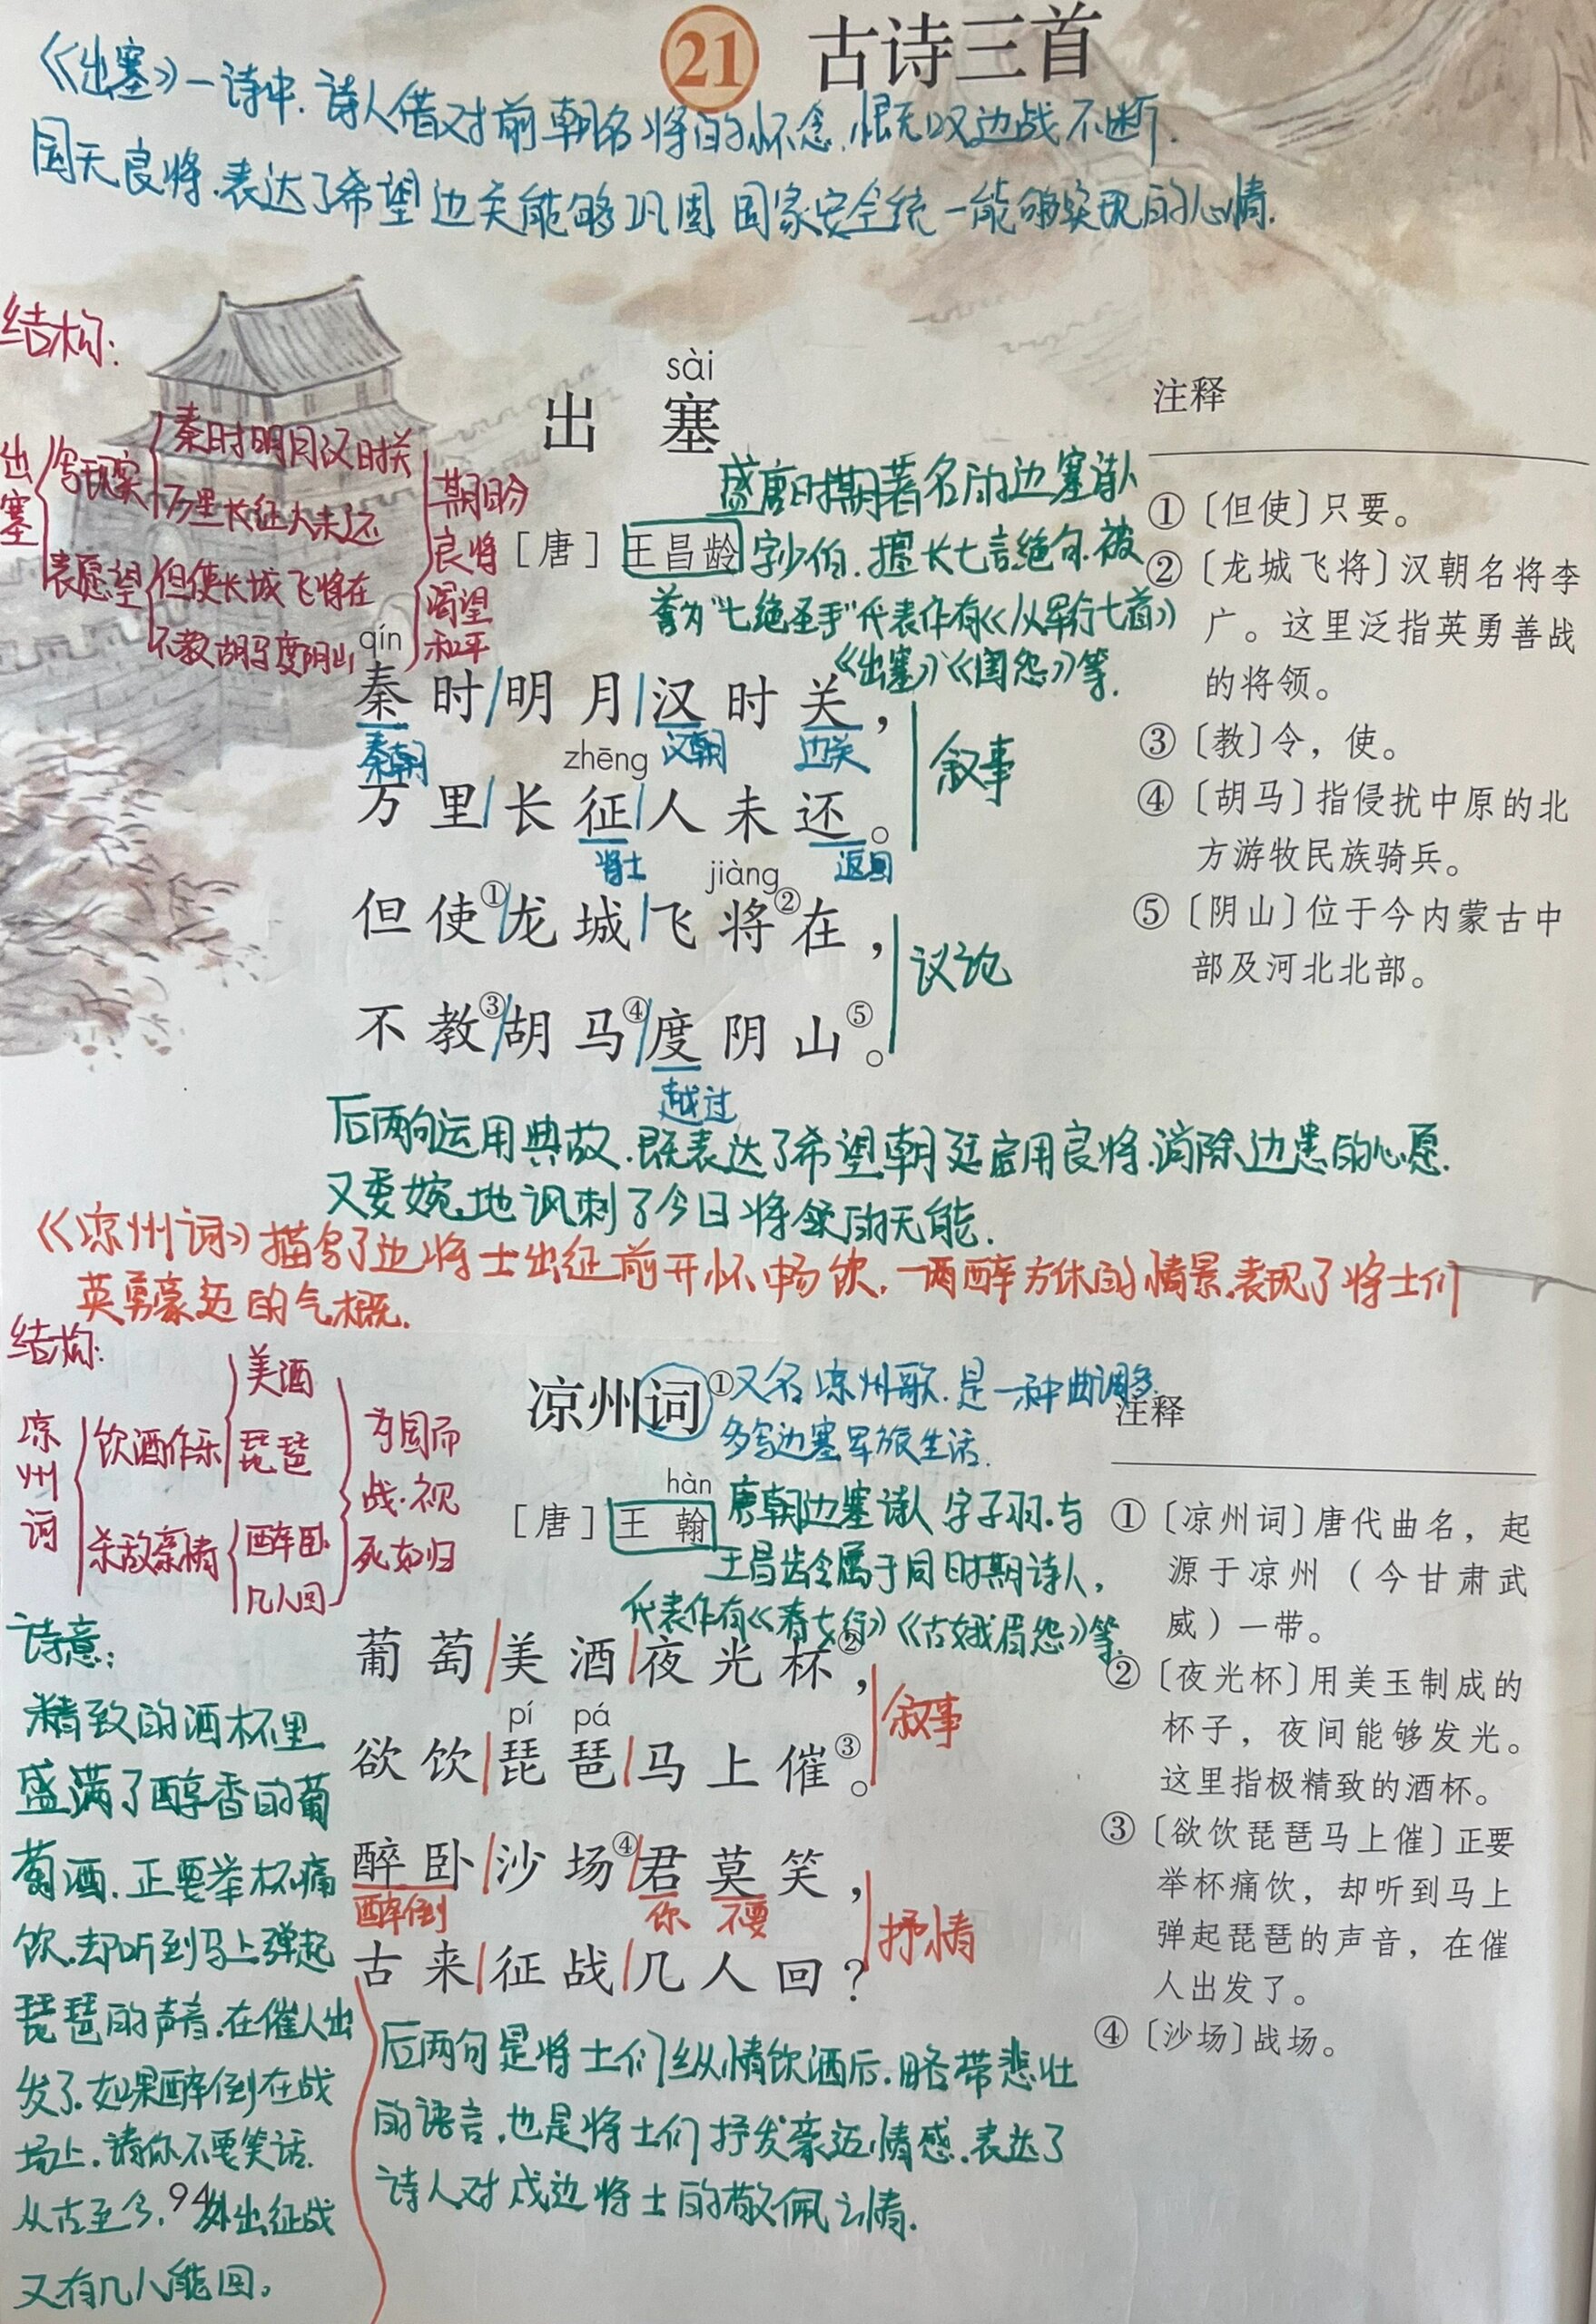 21 古诗三首
《出塞》一诗中.诗人借对前朝名将的怀念,恨无叹边战不断.
国无良将.表达了希望边关能够巩固 国家安全统一能够实现的心情.
结构:
出塞
写现实
秦时明月汉时关
万里长征人未还
表愿望
但使长城飞将在
不教胡马度阴山
期盼
良将
渴望
和平
sài
出 塞
[唐] 王昌龄
盛唐时期著名的边塞诗人
字少伯.擅长七言绝句.被
誉为"七绝圣手"代表作有《从军行七首》
《出塞》《闺怨》等.
qín
秦时/明月/汉时关,
秦朝 汉朝 边关
叙事
zhēng
万里/长征/人未还。
将士 返回
jiàng
但使①/龙城/飞将②在,
议论
不教③/胡马④/度阴山⑤。
越过
注释
①〔但使〕只要。
②〔龙城飞将〕汉朝名将李
广。这里泛指英勇善战
的将领。
③〔教〕令，使。
④〔胡马〕指侵扰中原的北
方游牧民族骑兵。
⑤〔阴山〕位于今内蒙古中
部及河北北部。
后两句运用典故.既表达了希望朝廷启用良将.消除边患的心愿.
又委婉地讽刺了今日将领的无能.
《凉州词》描写了边将士出征前开怀畅饮,一两醉方休的情景.表现了将士们
英勇豪迈的气概.
结构:
凉州词
饮酒作乐
美酒
琵琶
杀敌豪情
醉卧
几人回
为国而
战.视
死如归
凉州词①
又名凉州歌.是一种曲调多.
多写边塞军旅生活.
hàn
[唐] 王 翰
唐朝边塞诗人 字子羽.与
王昌龄属于同时期诗人,
代表作有《春女行》《古娥眉怨》等.
葡萄/美酒/夜光杯②,
叙事
pí pá
欲饮/琵琶/马上催③。
醉卧/沙场④/君莫笑,
醉倒 你 不要
抒情
古来/征战/几人回?
注释
①〔凉州词〕唐代曲名，起
源于凉州（今甘肃武
威）一带。
②〔夜光杯〕用美玉制成的
杯子，夜间能够发光。
这里指极精致的酒杯。
③〔欲饮琵琶马上催〕正要
举杯痛饮，却听到马上
弹起琵琶的声音，在催
人出发了。
④〔沙场〕战场。
诗意:
精致的酒杯里
盛满了醇香的葡
萄酒.正要举杯痛
饮.却听到马上弹起
琵琶的声音.在催人出
发了.如果醉倒在战
场上.请你不要笑话.
从古至今.外出征战
又有几人能回。
后两句是将士们纵情饮酒后.略带悲壮
的语言.也是将士们抒发豪迈情感.表达了
诗人对戍边将士的敬佩之情.
94